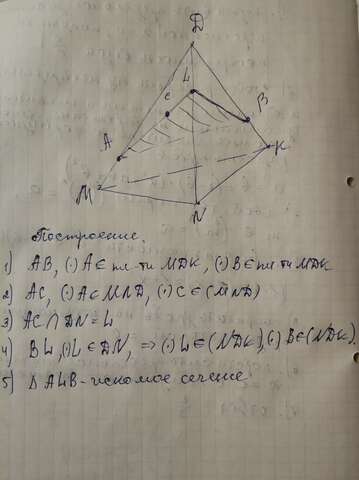 D
L
C
B
A
K
M
N
Построение
1) AB, (·)A∈ пл-ти MDK, (·)B∈ пл-ти MDK
2) AC, (·)A∈MND, (·)C∈(MND)
3) AC∩DN=L
4) BL, (·)L∈DN, => (·)L∈(NDK), (·)B∈(NDK).
5) ΔALB - искомое сечение